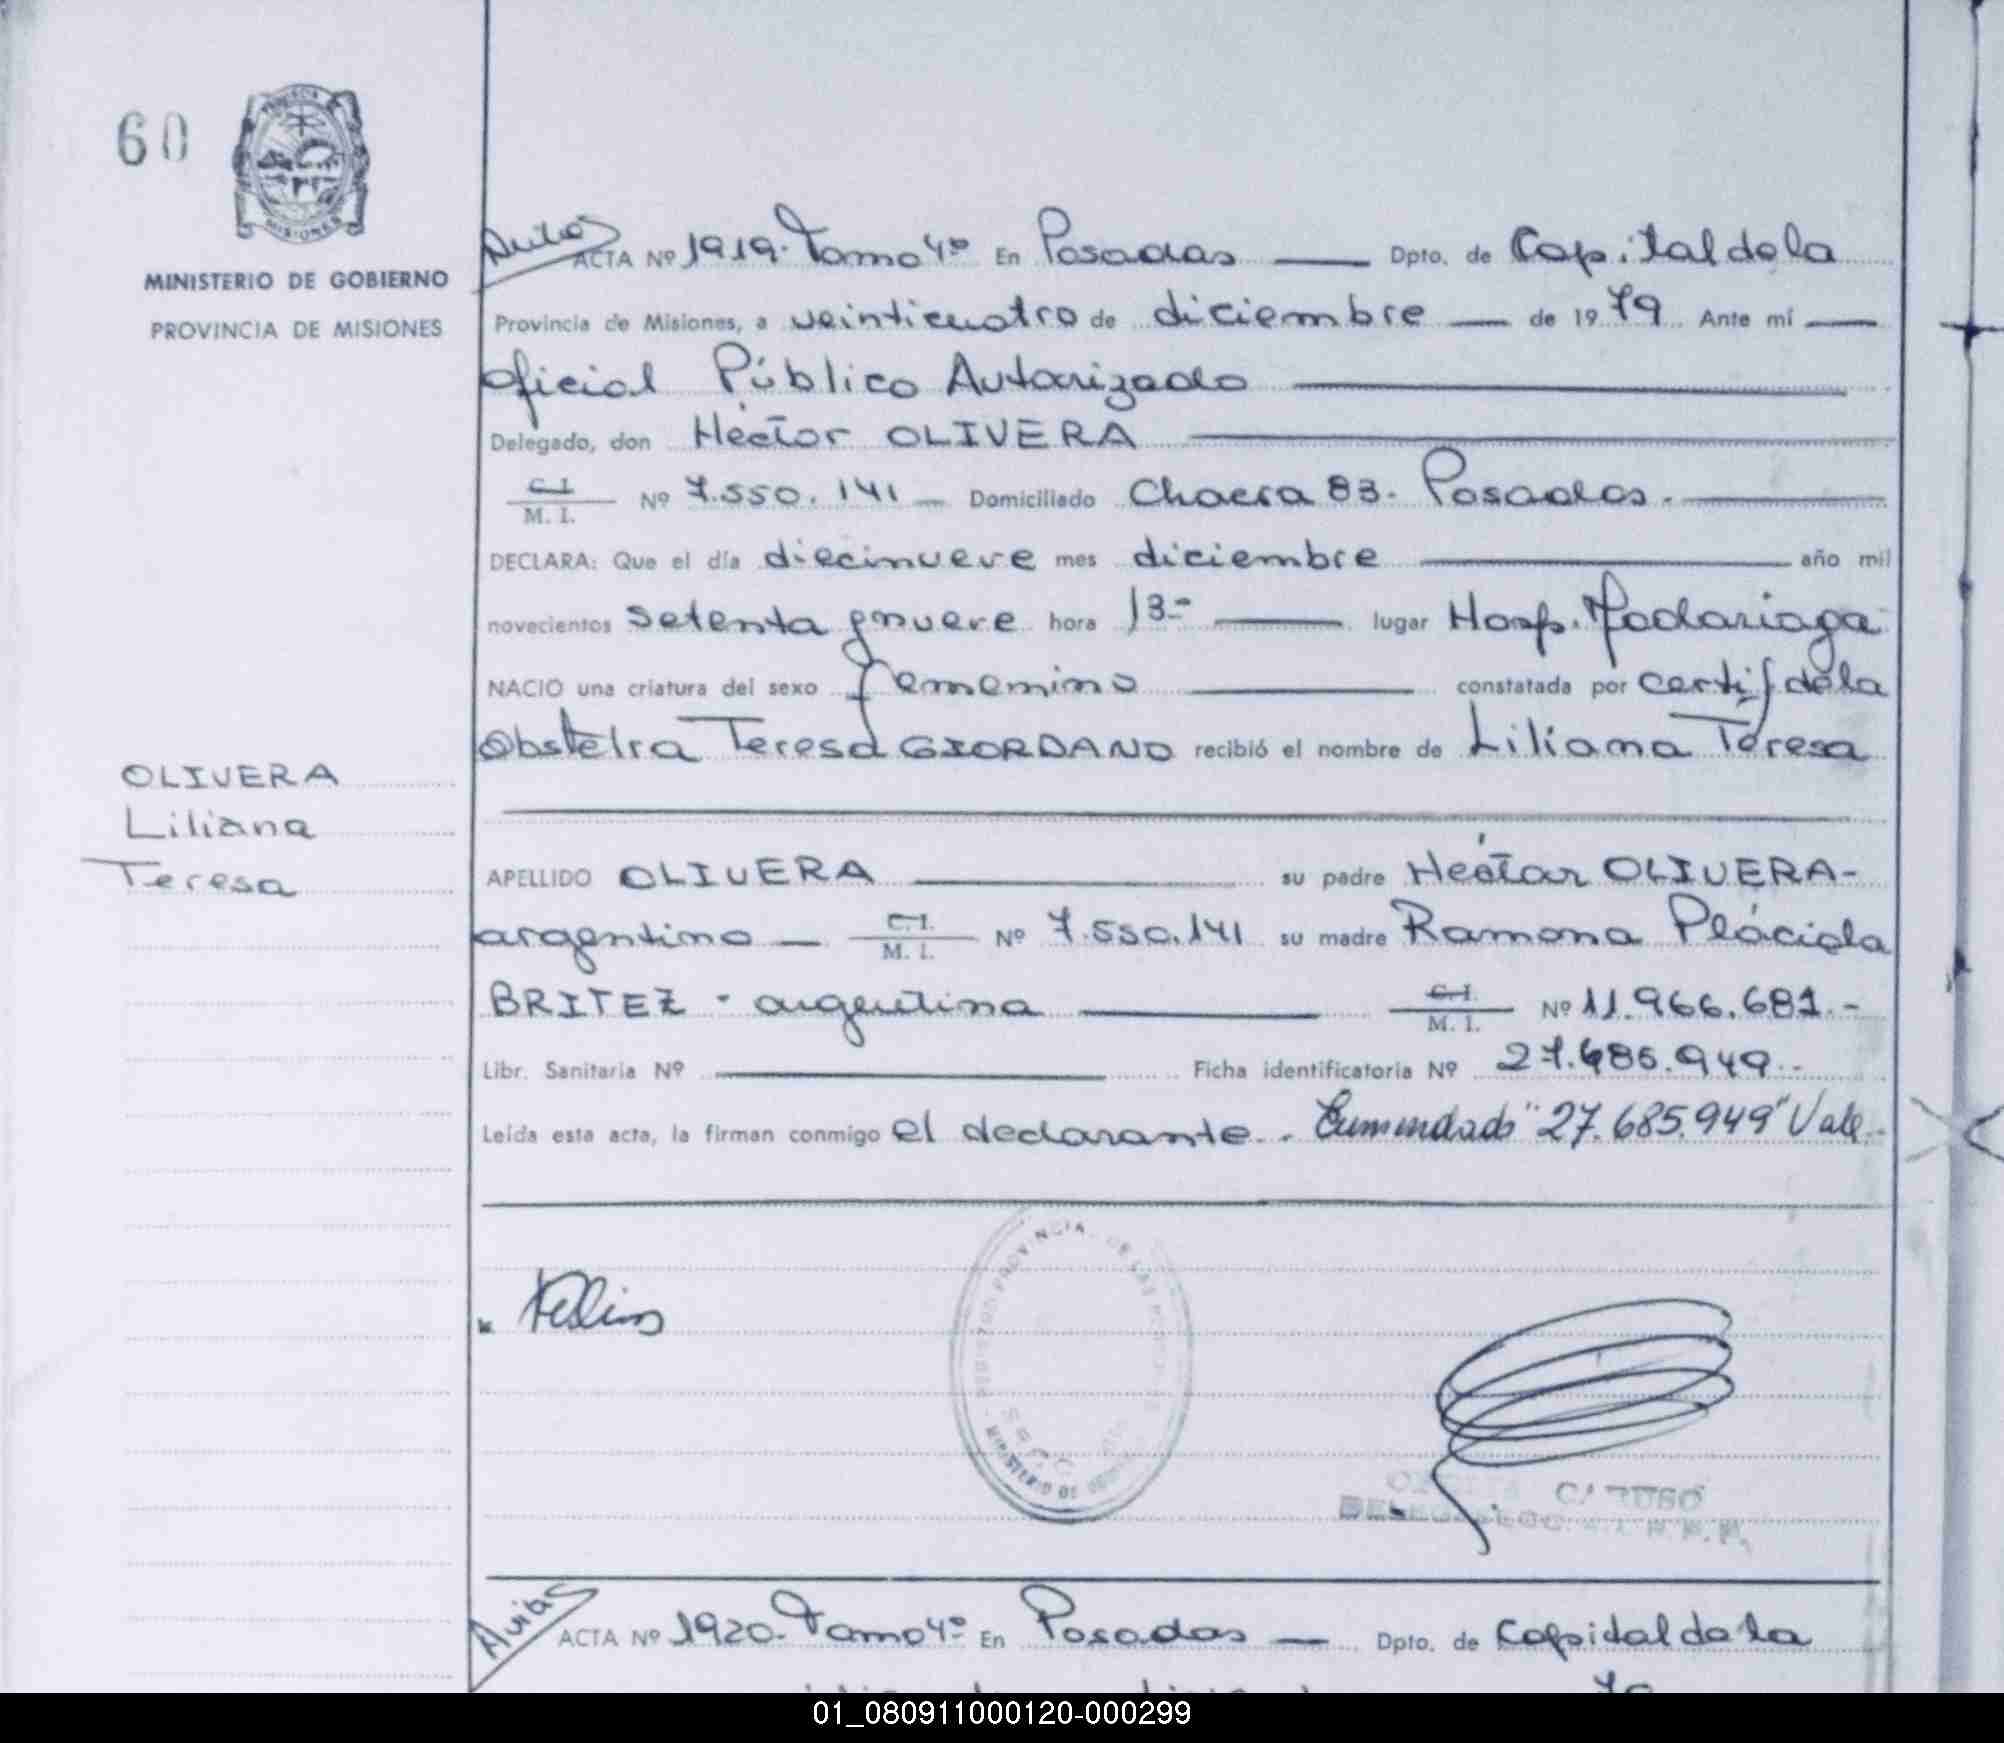 60
MINISTERIO DE GOBIERNO
PROVINCIA DE MISIONES
OLIVERA
Liliana
Teresa
ACTA Nº 1919. Tomo 4º En Posadas Dpto. de Capital de la
Provincia de Misiones, a veinticuatro de diciembre de 1979 Ante mí
Oficial Público Autorizado
Delegado, don Héctor OLIVERA
C.I.
M. I. Nº 7.550.141 Domiciliado Chacra 83. Posadas.
DECLARA: Que el día diecinueve mes diciembre año mil
novecientos setenta y nueve hora 13- lugar Hosp. Madariaga
NACIO una criatura del sexo femenino constatada por certif de la
Obstetra Teresa GIORDANO recibió el nombre de Liliana Teresa
APELLIDO OLIVERA su padre Héctor OLIVERA-
argentino C.I.
M. I. Nº 7.550.141 su madre Ramona Plácida
BRITEZ - argentina C.I.
M. I. Nº 11.966.681.-
Libr. Sanitaria Nº Ficha identificatoria Nº 27.685.949.-
Leída esta acta, la firman conmigo el declarante. Enmendado "27.685.949" Vale.-
REGISTRO PROVINCIAL DE LAS
MINISTERIO DE
CARUSO
ACTA Nº 1920. Tomo 4º En Posadas Dpto. de Capital de la
01_080911000120-000299